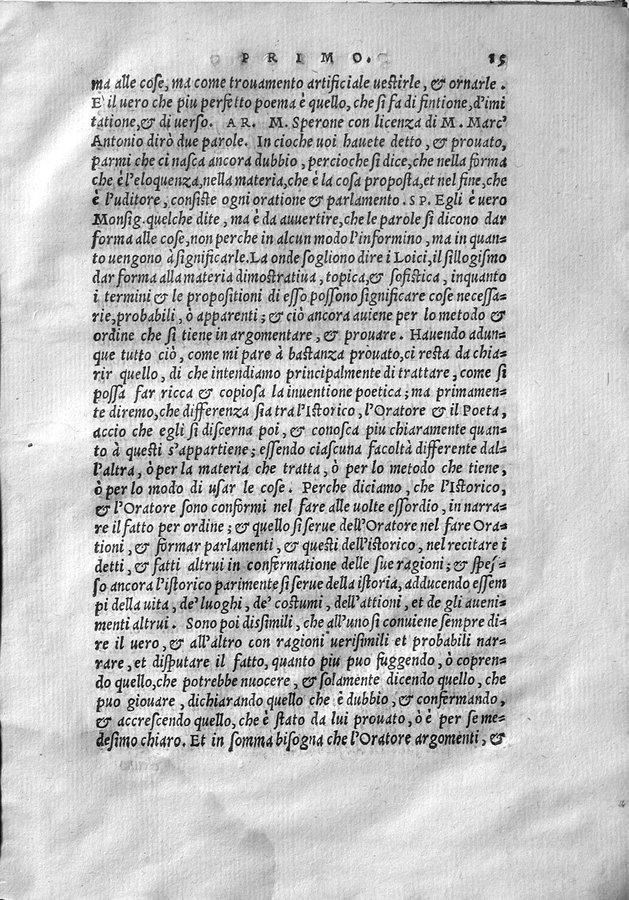 PRIMO. 15
ma alle cose, ma come trouamento artificiale uestirle, & ornarle.
E il uero che piu perfetto poema è quello, che si fa di fintione, d'imi
tatione, & di uerso. AR. M. Sperone con licenza di M. Marc'
Antonio dirò due parole. In cioche uoi hauete detto, & prouato,
parmi che ci nasca ancora dubbio, percioche si dice, che nella forma
che è l'eloquenza, nella materia, che è la cosa proposta, et nel fine, che
è l'uditore, consiste ogni oratione & parlamento. SP. Egli è uero
Monsig. quelche dite, ma è da auuertire, che le parole si dicono dar
forma alle cose, non perche in alcun modo l'informino, ma in quan=
to uengono à significarle. La onde sogliono dire i Loici, il sillogismo
dar forma alla materia dimostratiua, topica, & sofistica, inquanto
i termini & le propositioni di esso possono significare cose necessa=
rie, probabili, ò apparenti; & ciò ancora auiene per lo metodo &
ordine che si tiene in argomentare, & prouare. Hauendo adun=
que tutto ciò, come mi pare à bastanza prouato, ci resta da chia=
rir quello, di che intendiamo principalmente di trattare, come si
possa far ricca & copiosa la inuentione poetica; ma primamen=
te diremo, che differenza sia tra l'Istorico, l'Oratore & il Poeta,
accio che egli si discerna poi, & conosca piu chiaramente quan=
to à questi s'appartiene; essendo ciascuna facoltà differente dal=
l'altra, ò per la materia che tratta, ò per lo metodo che tiene,
ò per lo modo di usar le cose. Perche diciamo, che l'Istorico,
& l'Oratore sono conformi nel fare alle uolte essordio, in narra=
re il fatto per ordine; & quello si serue dell'Oratore nel fare Ora=
tioni, & formar parlamenti, & questi dell'istorico, nel recitare i
detti, & fatti altrui in confermatione delle sue ragioni; & spes=
so ancora l'istorico parimente si serue della istoria, adducendo essem
pi della uita, de' luoghi, de' costumi, dell'attioni, et de gli aueni=
menti altrui. Sono poi dissimili, che all'uno si conuiene sempre di=
re il uero, & all'altro con ragioni uerisimili et probabili nar=
rare, et disputare il fatto, quanto piu puo fuggendo, ò copren=
do quello, che potrebbe nuocere, & solamente dicendo quello, che
puo giouare, dichiarando quello che è dubbio, & confermando,
& accrescendo quello, che è stato da lui prouato, ò è per se me=
desimo chiaro. Et in somma bisogna che l'Oratore argomenti, &